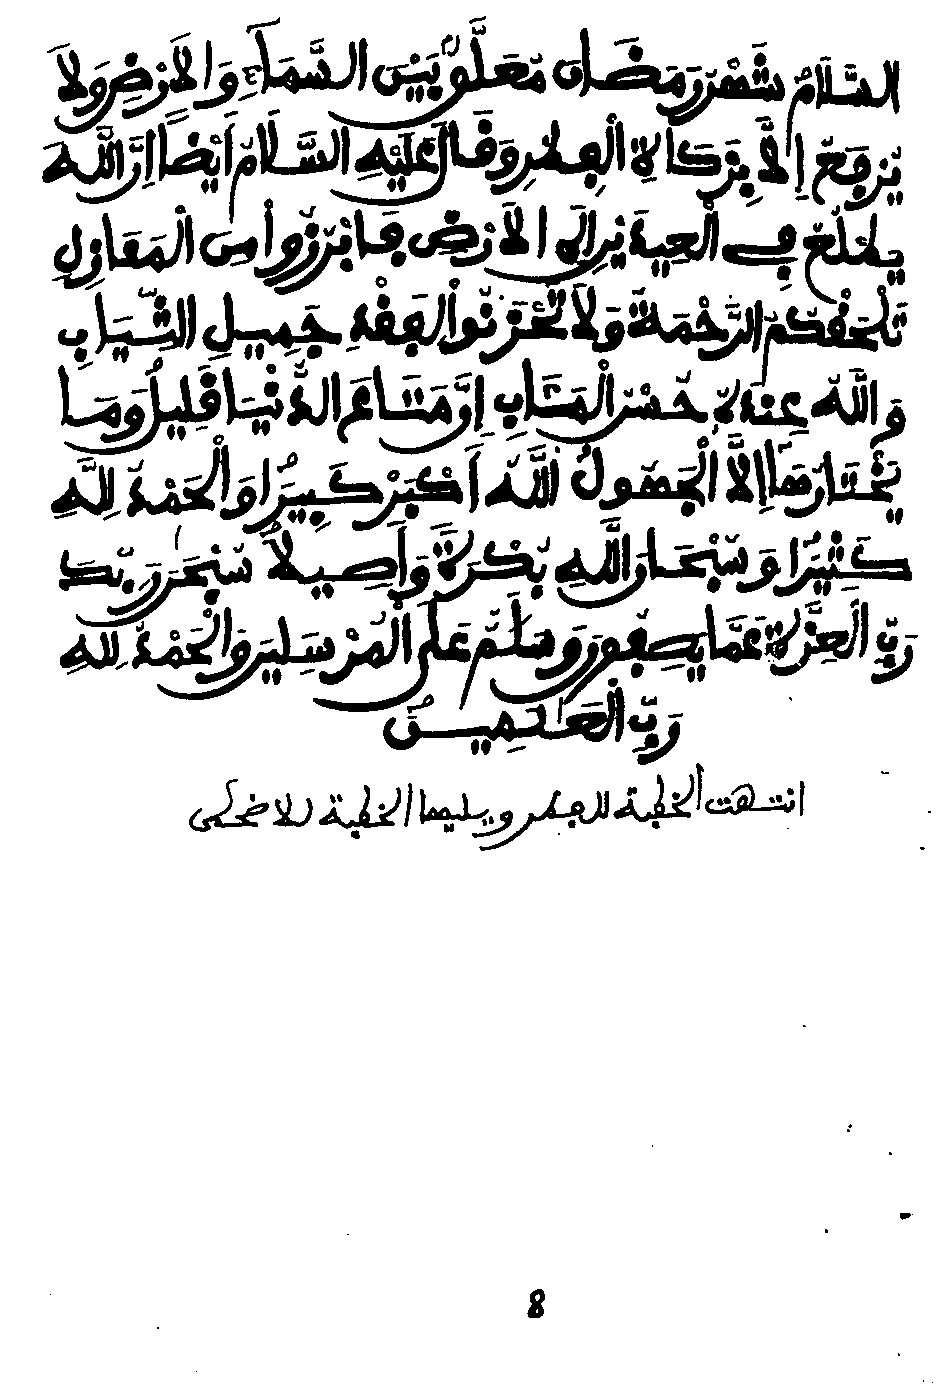 السَّلَامُ شَهْرُ رَمَضَانَ مُعَلَّقٌ بَيْنَ السَّمَآءِ وَالَارْضِ وَلَا
يُرْفَعُ إِلَّا بِزَكَاةِ الْفِطْرِ وَقَالَ عَلَيْهِ السَّلَامُ أَيْضًا إِنَّ اللَّهَ
يَطَّلِعُ فِي الْعِيدَيْنِ إِلَى الَارْضِ فَابْرُزُوا مِنَ الْمَنَازِلِ
تَلْحَقُكُمُ الرَّحْمَةُ وَلَا تَغُرَّنَّكُمْ جَمِيلِ الثِّيَابِ
وَاللَّهُ عِنْدَهُ حُسْنُ الْمَئَابِ إِنَّ مَتَاعَ الدُّنْيَا قَلِيلٌ وَمَا
يَخْتَارُهَا إِلَّا الْجَهُولُ اللَّهُ أَكْبَرُ كَبِيرًا وَالْحَمْدُ لِلَّهِ
كَثِيرًا وَسُبْحَانَ اللَّهِ بُكْرَةً وَأَصِيلًا سُبْحَانَ رَبِّكَ
رَبِّ الْعِزَّةِ عَمَّا يَصِفُونَ وَسَلَامٌ عَلَى الْمُرْسَلِينَ وَالْحَمْدُ لِلَّهِ
رَبِّ الْعَالَمِينَ
انتهت الخطبة للفطر ويليها الخطبة للاضحى
8